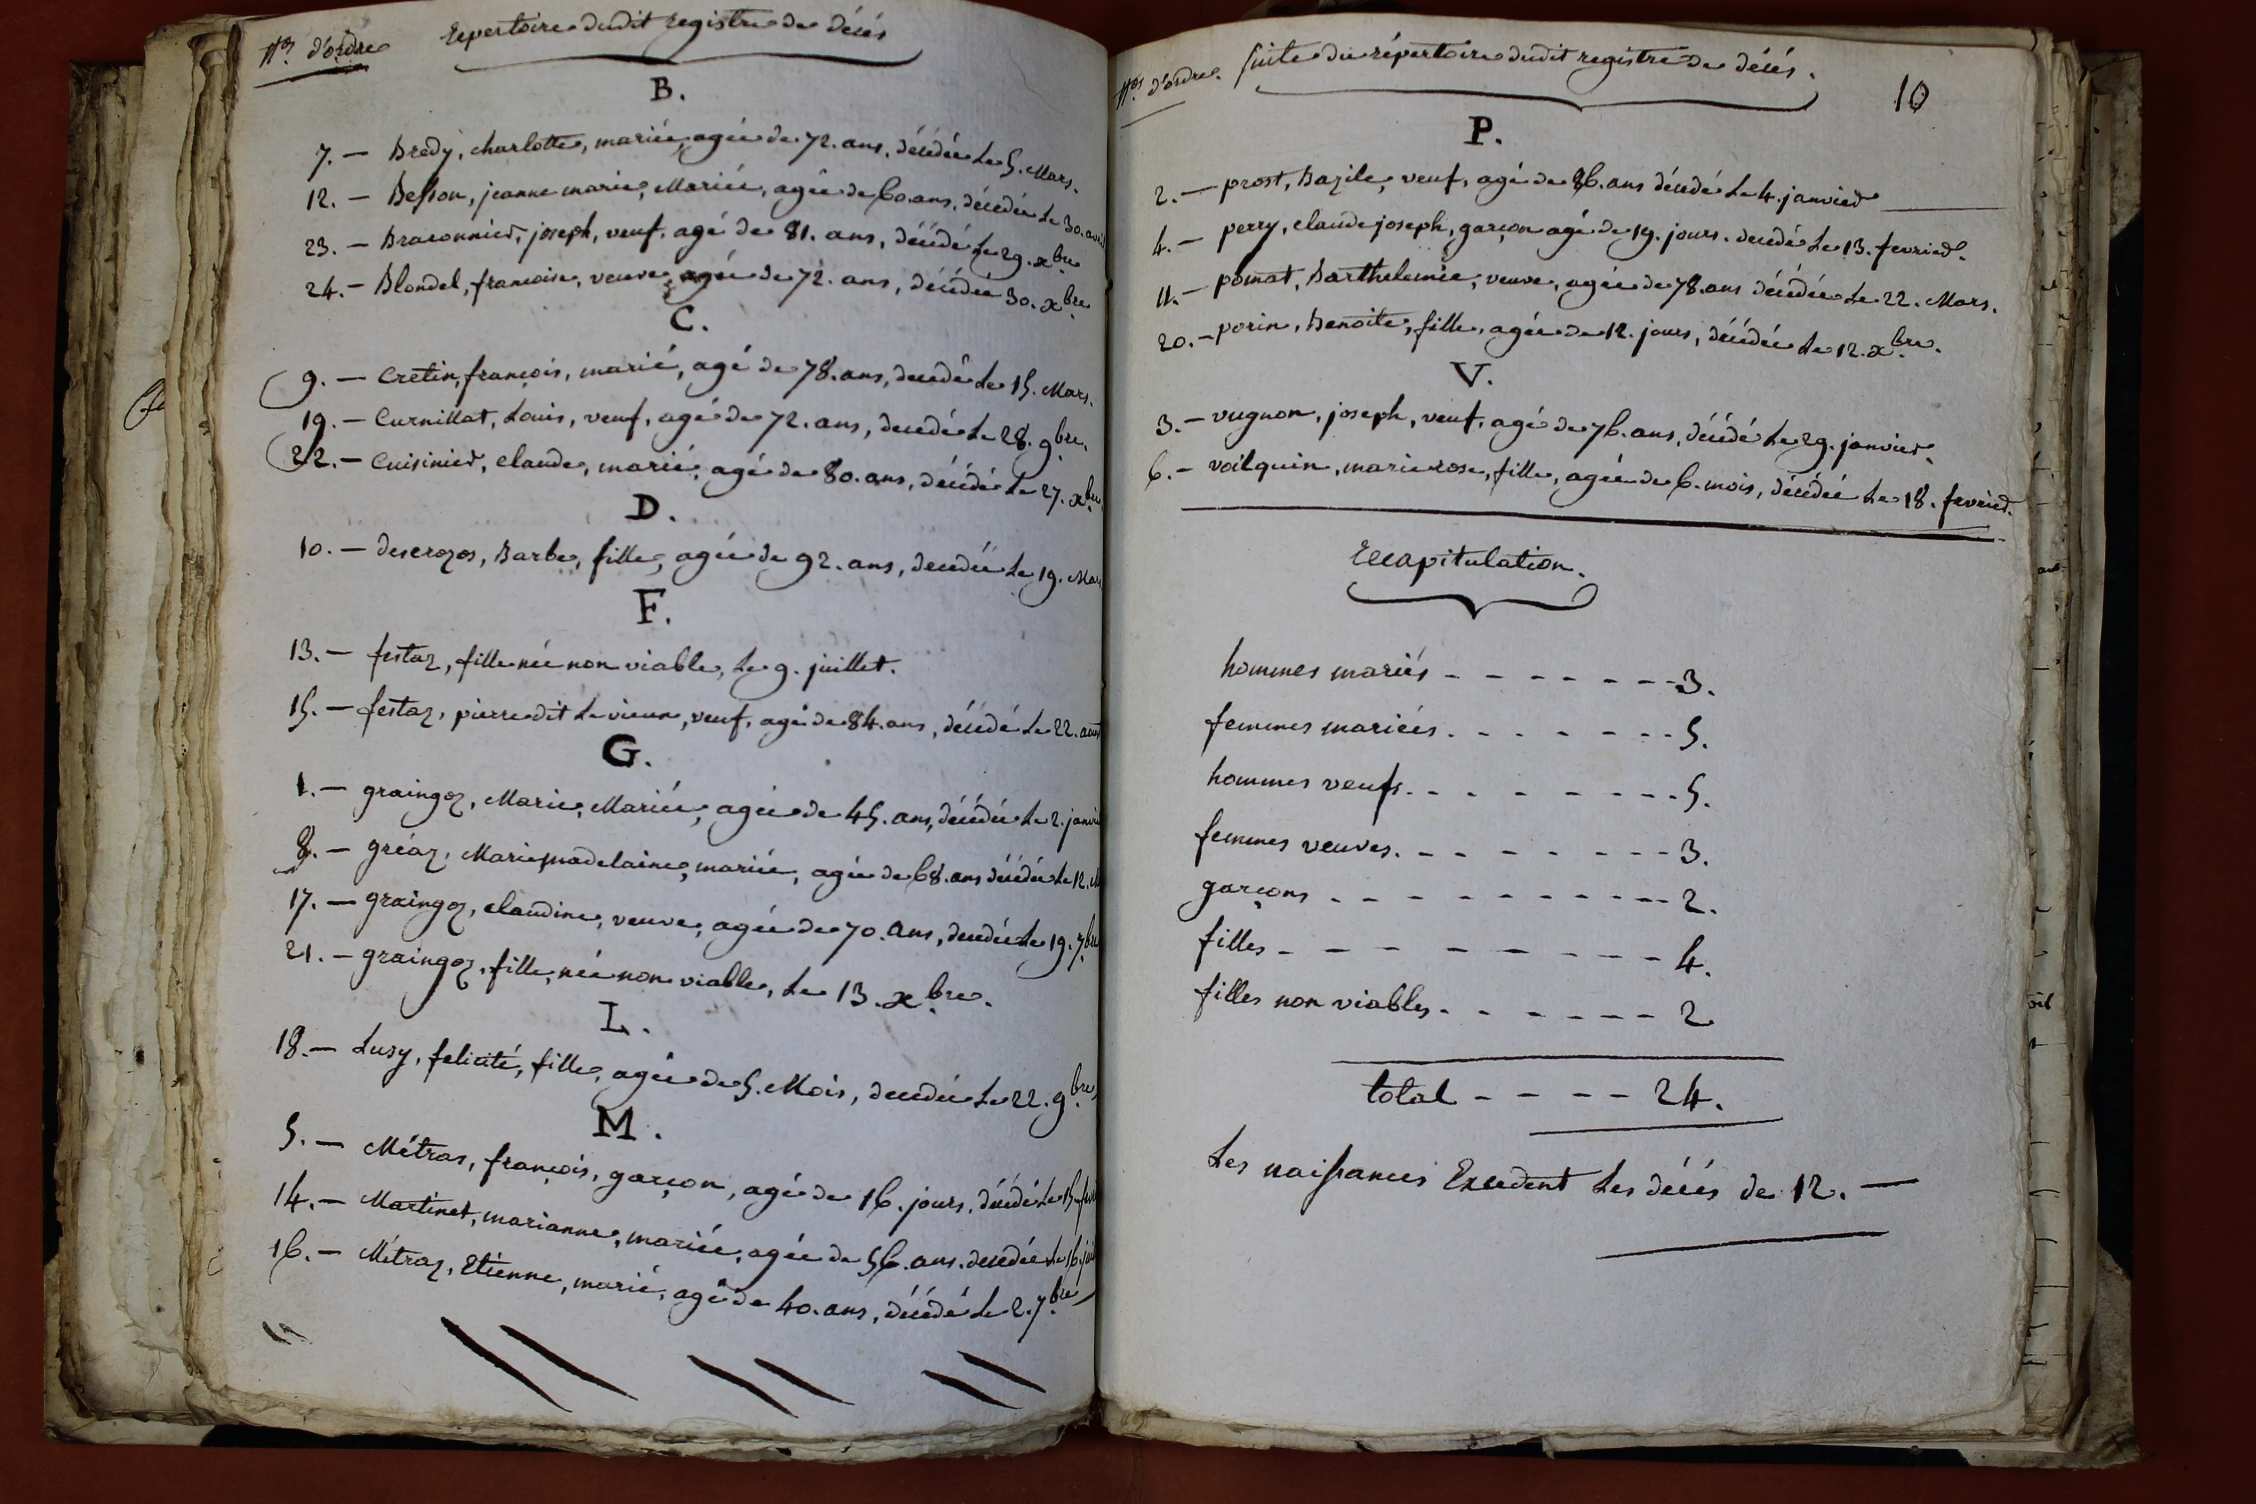 Nos. d'ordre
Repertoire dudit registre de décés
B.
7. — Bredy, charlotte, mariée, agée de 72. ans, décédée le 5. Mars.
12. — Besson, jeanne marie, Mariée, agée de 60. ans, décédée le 30. avril
23. — Braconnier, joseph, veuf, agé de 81. ans, décédé le 29. xbre
24. — Blondel, francoise, veuve, agée de 72. ans, décédée 30. xbre
C.
9. — Cretin, françois, marié, agé de 78. ans, decedé le 15. Mars.
19. — Curnillat, Louis, veuf, agé de 72. ans, decedé le 28. 9bre.
22. — Cuisinier, claude, marié, agé de 80. ans, décédé le 27. xbre
D.
10. — descrozos, Barbe, fille, agée de 92. ans, decedée le 19. Mar
F.
13. — festaz, fille née non viable, le 9. juillet.
15. — festaz, pierre dit le vieux, veuf, agé de 84. ans, décédé le 22. aout
G.
1. — graingoz, Marie, Mariée, agée de 45. ans, décédée le 2. janvi
8. — gréaz, Marie madelaine, mariée, agée de 68. ans décédée le 12. M
17. — graingoz, claudine, veuve, agée de 70. ans, decedée le 19. 7bre
21. — graingoz, fille, née non viable, le 13. xbre.
L.
18. — Lusy, felicité, fille, agée de 5. Mois, decedée le 22. 9bre
M.
5. — Métras, françois, garçon, agé de 16. jours, décédé le 15. fev
14. — Martinet, marianne, mariée, agée de 56. ans. decedée le 16. jui
16. — Métraz, Etienne, marié, agé de 40. ans, décédé le 2. 7bre
Nos. d'ordre.
Suite du répertoire dudit registre de décés.
10
P.
2. — prost, Bazile, veuf, agé de 86. ans décedé le 4. janvier
4. — perry, claude joseph, garçon agé de 19. jours. decedé le 13. fevrier.
11. — pomat, Barthelemie, veuve, agée de 78. ans décédée le 22. Mars.
20. — porin, Benoite, fille, agée de 12. jours, décédée le 12. xbre.
V.
3. — vugnon, joseph, veuf, agé de 76. ans, décédé le 29. janvier.
6. — voitquin, marie rose, fille, agée de 6. mois, décédée le 18. fevrier.
Recapitulation.
hommes mariés - - - - - - - 3.
femmes mariées. - - - - - - - 5.
hommes veufs. - - - - - - - 5.
femmes veuves. - - - - - - - 3.
garçons . - - - - - - - - - 2.
filles - - - - - - - - - 4.
filles non viables. - - - - - - 2
total - - - - 24.
Les naissances Excedent les décés de 12. —